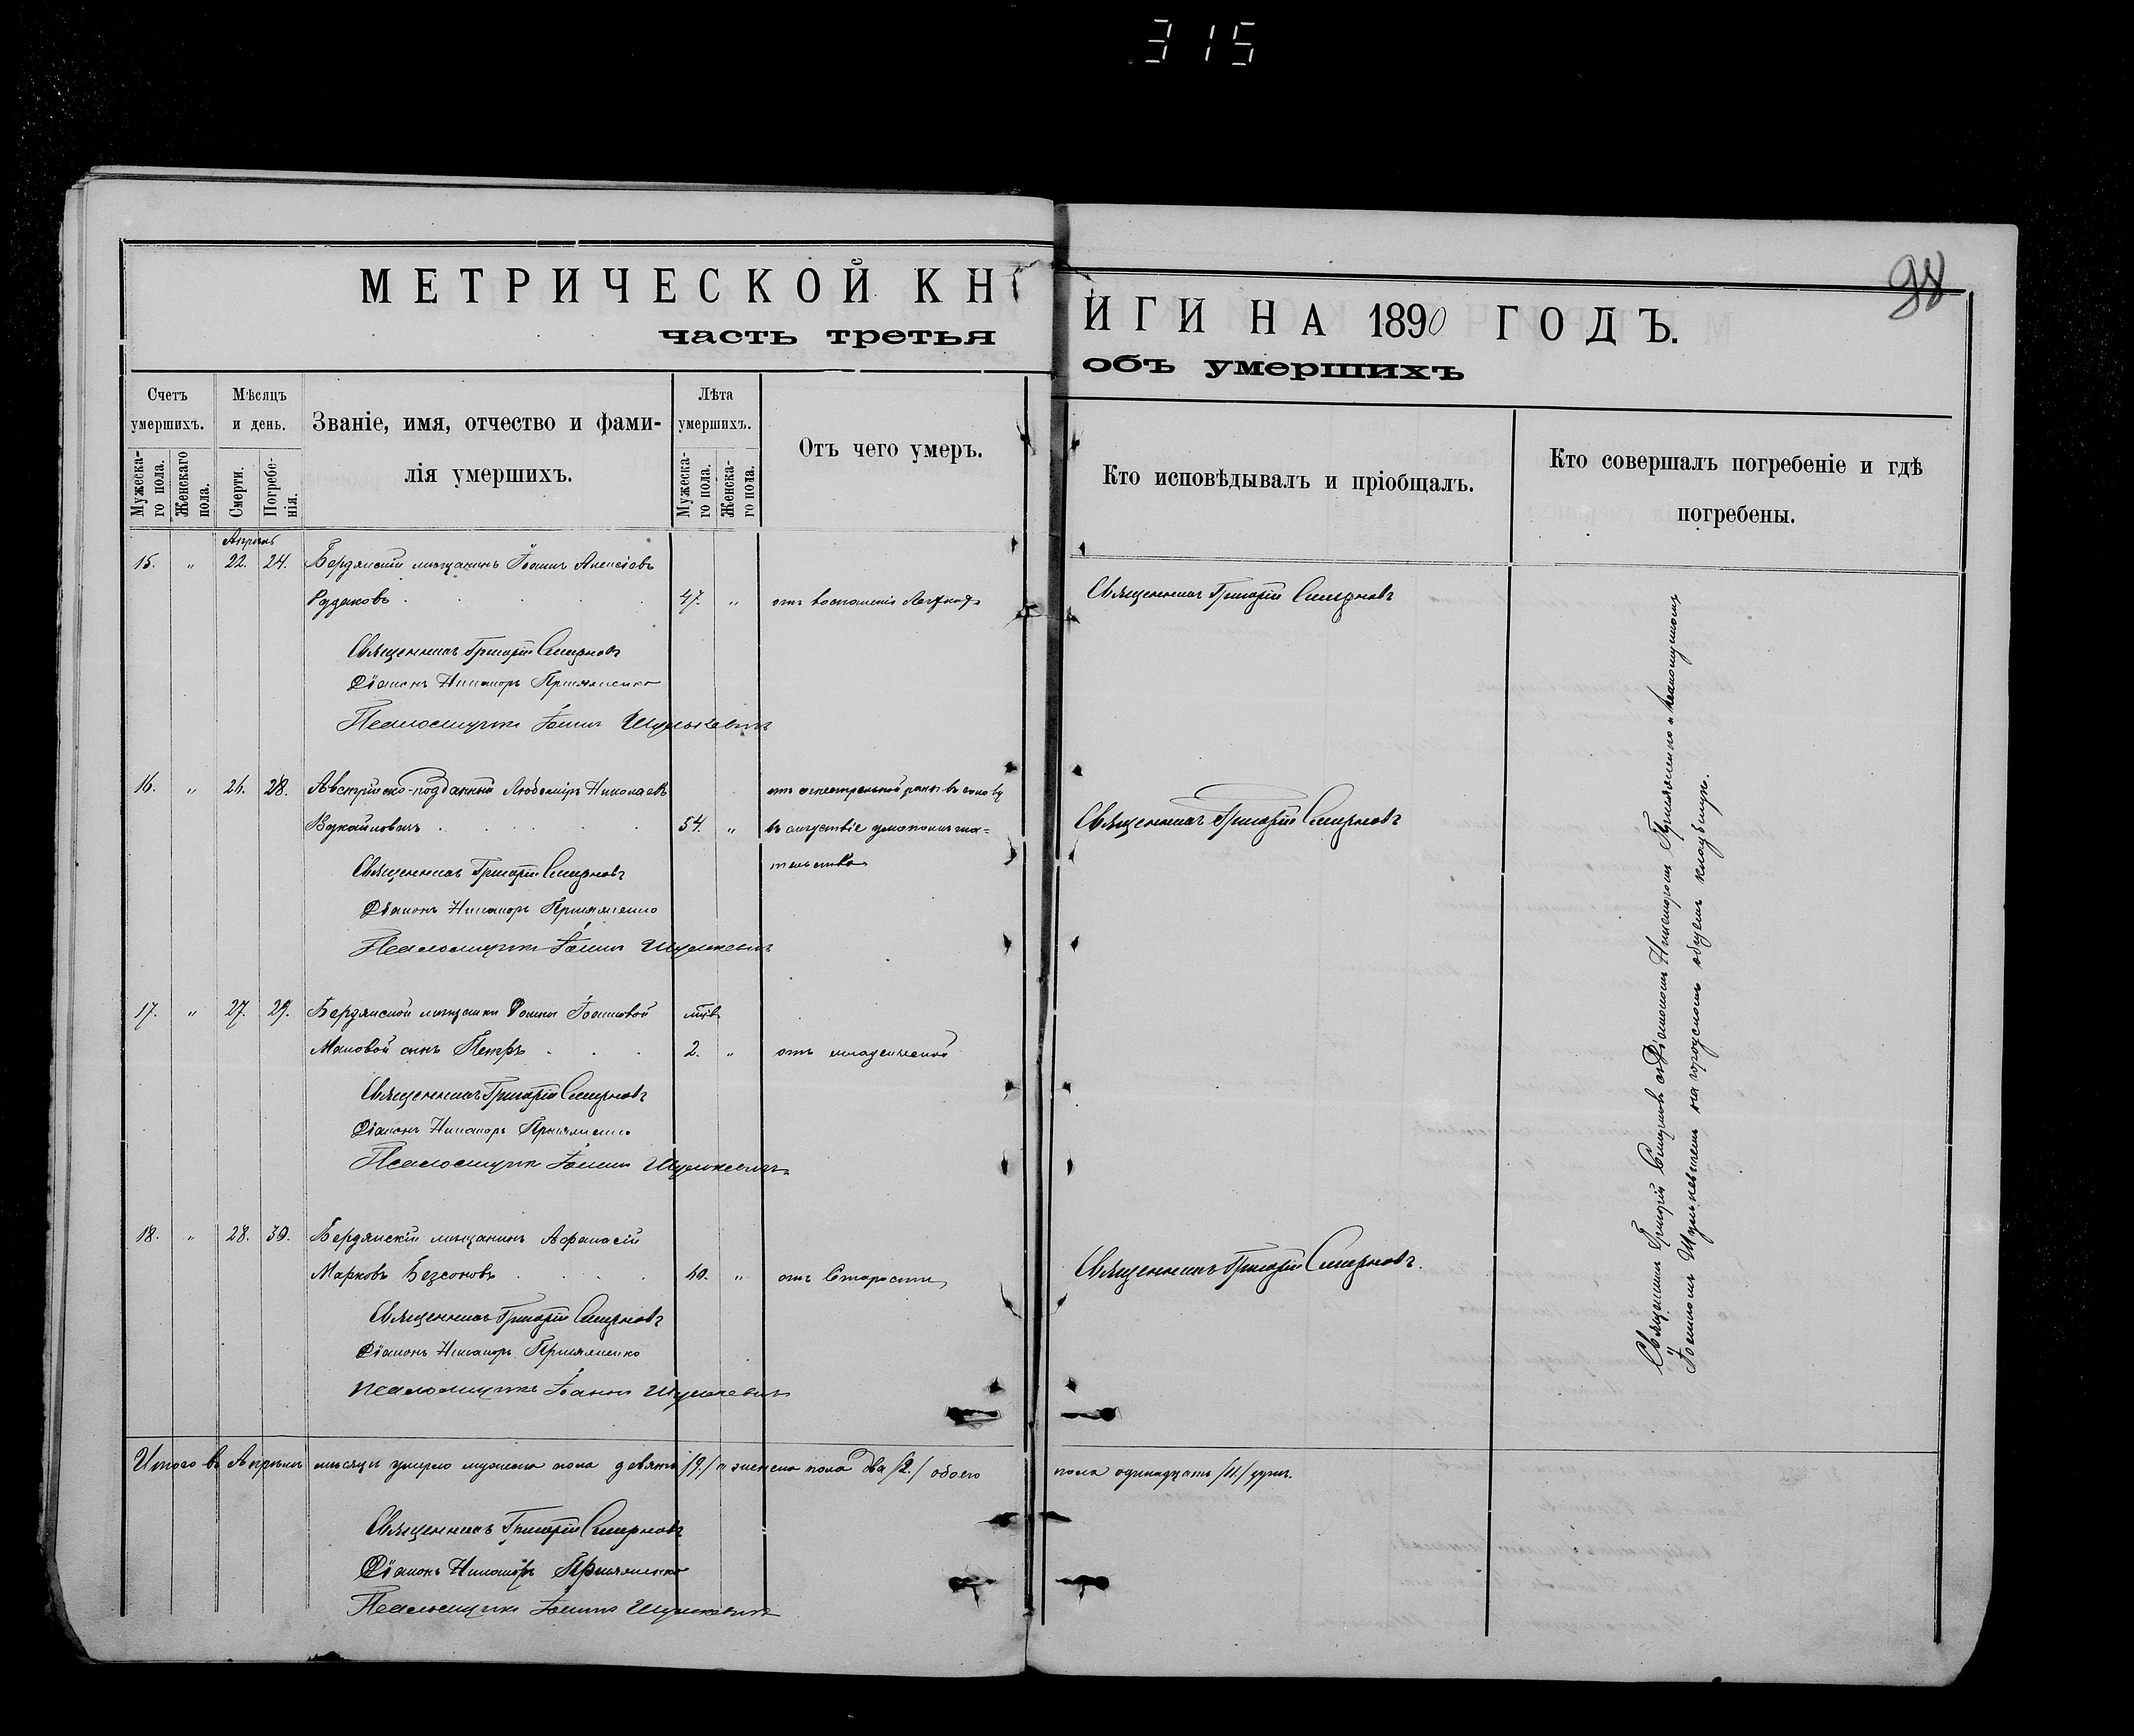 315
98
МЕТРИЧЕСКОЙ КНИГИ НА 1890 ГОДЪ.
часть третья объ умершихъ
Счетъ умершихъ.
Мужеска-го пола.
Женскаго пола.
Мѣсяцъ и день.
Смерти.
Погребе-нія.
Званіе, имя, отчество и фами-
лія умершихъ.
Лѣта умершихъ.
Мужеска-го пола.
Женска-го пола.
Отъ чего умеръ.
Кто исповѣдывалъ и пріобщалъ.
Кто совершалъ погребеніе и гдѣ
погребены.
Апрѣль
15. " 22. 24. Бердянскій мѣщанинъ Іоаннъ Алексѣевъ
Рудаковъ 47. " отъ воспаленія легкихъ Священникъ Григорій Смирновъ
Священникъ Григорій Смирновъ
Діаконъ Никаноръ
Псаломщикъ Іоаннъ Шулькевичъ
16. " 26. 28. Австрійско-подданный Любомиръ Николаевъ отъ огнестрѣльной раны въ голову
Вукаиловичъ 54. " въ слѣдствіе умопомѣша- Священникъ Григорій Смирновъ
тельства
Священникъ Григорій Смирновъ
Діаконъ Никаноръ
Псаломщикъ Іоаннъ Шулькевичъ
17. " 27. 29. Бердянской мѣщанки Іоанновой
сынъ Петръ 2. " отъ младенческой
Священникъ Григорій Смирновъ
Діаконъ Никаноръ
Псаломщикъ Іоаннъ Шулькевичъ
18. " 28. 30. Бердянскій мѣщанинъ Афанасій
Марковъ Безсоновъ " отъ старости Священникъ Григорій Смирновъ.
Священникъ Григорій Смирновъ
Діаконъ Никаноръ
Псаломщикъ Іоаннъ Шулькевичъ
Священникъ Григорій Смирновъ съ Діакономъ Никаноромъ и псаломщикомъ
Іоанномъ Шулькевичемъ на городскомъ общемъ кладбищѣ.
Итого въ Апрѣлѣ мѣсяцѣ умерло мужеска пола девять /9./ а женска пола два /2./ обоего пола одинадцать /11./ душъ.
Священникъ Григорій Смирновъ
Діаконъ Никаноръ
Псаломщикъ Іоаннъ Шулькевичъ